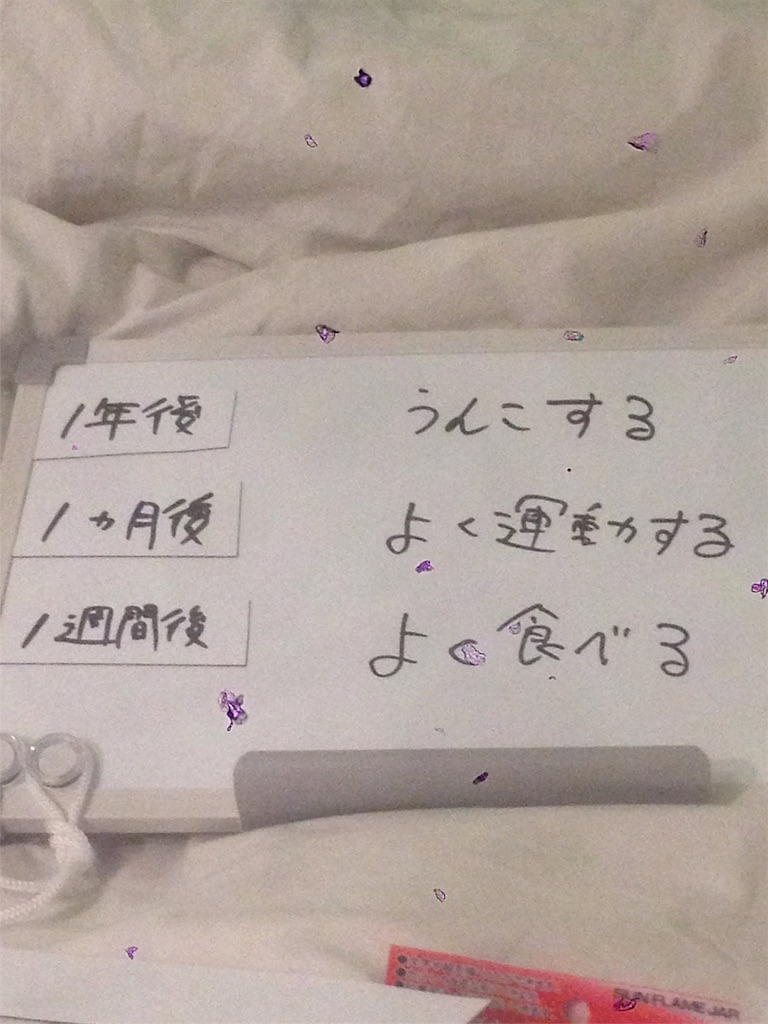 1年後 うんこする
1ヵ月後 よく運動する
1週間後 よく食べる
SUN FLAME JAR